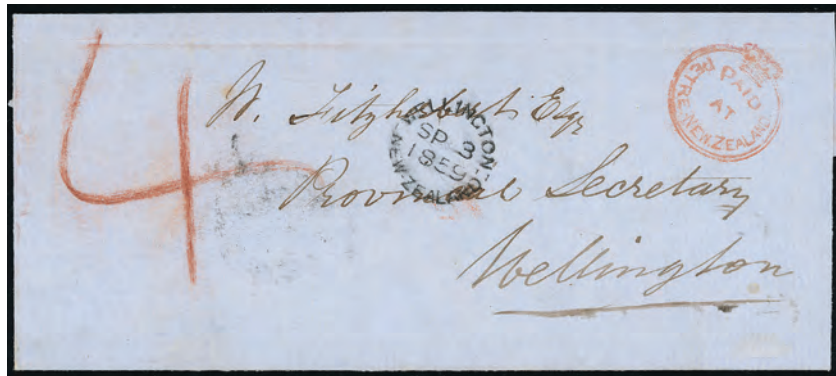 4
W. Fitzherbert Esqr
Provincial Secretary
Wellington
WELLINGTON
SP 3
1859
NEW ZEALAND
PAID
AT
PETRE NEW ZEALAND